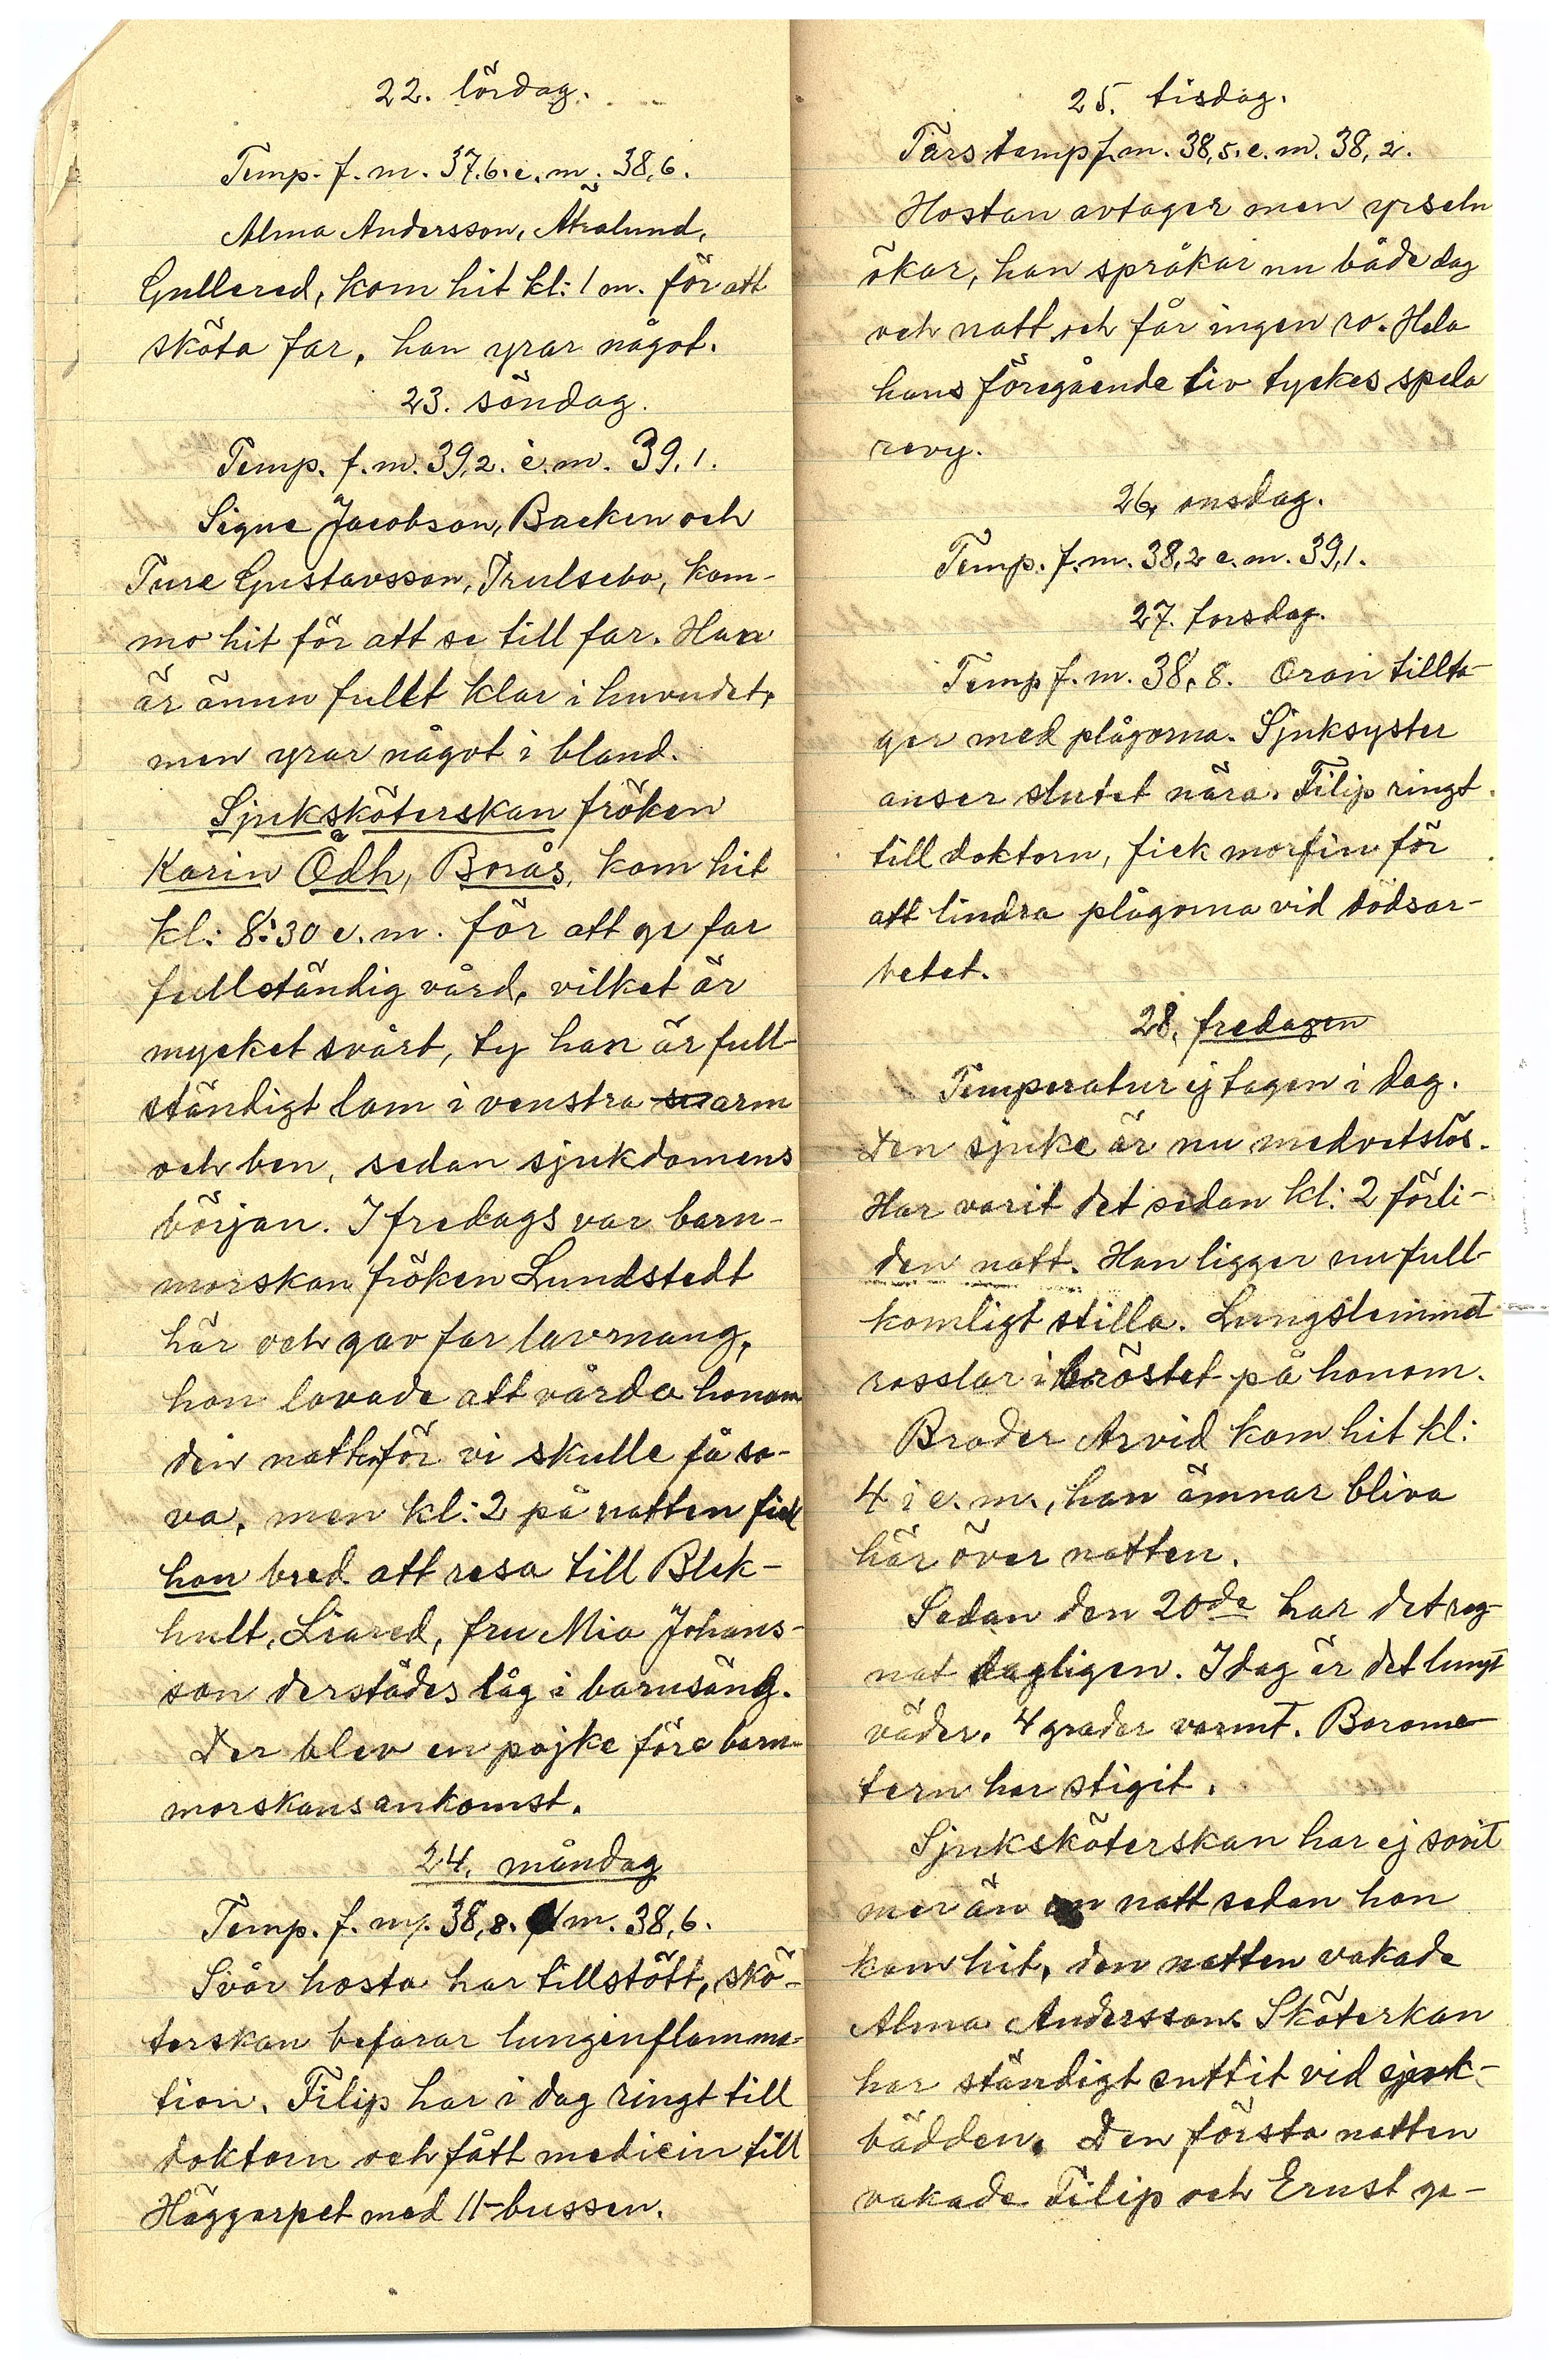 22. lördag.
Temp. f. m. 37.6. e. m. 38,6.
Alma Andersson, Åtralund,
Gullered, kom hit kl: 1 m. för att
sköta far, han yrar något.
23. söndag.
Temp. f. m. 39,2. e. m. 39,1.
Signe Jacobson, Backen och
Ture Gustavsson, Trulsebo, kom-
mo hit för att se till far. Han
är ännu fullt klar i huvudet,
men yrar något i bland.
Sjuksköterskan fröken
Karin Ödh, Borås, kom hit
kl: 8:30 e. m. för att ge far
fullständig vård, vilket är
mycket svårt, ty han är full-
ständigt lam i venstra arm
och ben, sedan sjukdomens
början. I fredags var barn-
morskan fröken Lundstedt
här och gav far lavmang,
hon lovade att vårda honom
den natten för vi skulle få so-
va, men kl: 2 på natten fick
hon bred att resa till Blek-
hult, Liared, fru Mia Johans-
son derstädes låg i barnsäng.
Der blev en pojke före barn-
morskans ankomst.
24. måndag
Temp. f. m. 38,8. e m. 38,6.
Svår hosta har tillstött, skö-
terskan befarar lunginflamma-
tion. Filip har i dag ringt till
doktorn och fått medicin till
Häggarpet med 11-bussen.
25. tisdag.
Fars temp f. m. 38,5. e. m. 38,2.
Hostan avtager men yrseln
ökar, han språkar nu både dag
och natt och får ingen ro. Hela
hans föregående liv tyckes spela
revy.
26, onsdag.
Temp. f. m. 38,2 e. m. 39,1.
27. torsdag.
Temp f. m. 38,8. Oron tillta-
ger med plågorna. Sjuksyster
anser slutet nära. Filip ringt
till doktorn, fick morfin för
att lindra plågorna vid dödsar-
betet.
28, fredagen
Temperatur ej tagen i dag.
Den sjuke är nu medvetslös.
Har varit det sedan kl: 2 förli-
den natt. Han ligger nu full-
komligt stilla. Lungslemmet
rosslar i bröstet på honom.
Broder Arvid kom hit kl:
4 i e. m., han ämnar bliva
här över natten.
Sedan den 20de har det reg-
nat dagligen. I dag är det lungt
väder. 4 grader varmt. Barome-
tern har stigit.
Sjuksköterskan har ej sovit
mer än en natt sedan hon
kom hit, den natten vakade
Alma Andersson. Sköterkan
har ständigt suttit vid sjuk-
bädden. Den första natten
vakade Filip och Ernst ge-